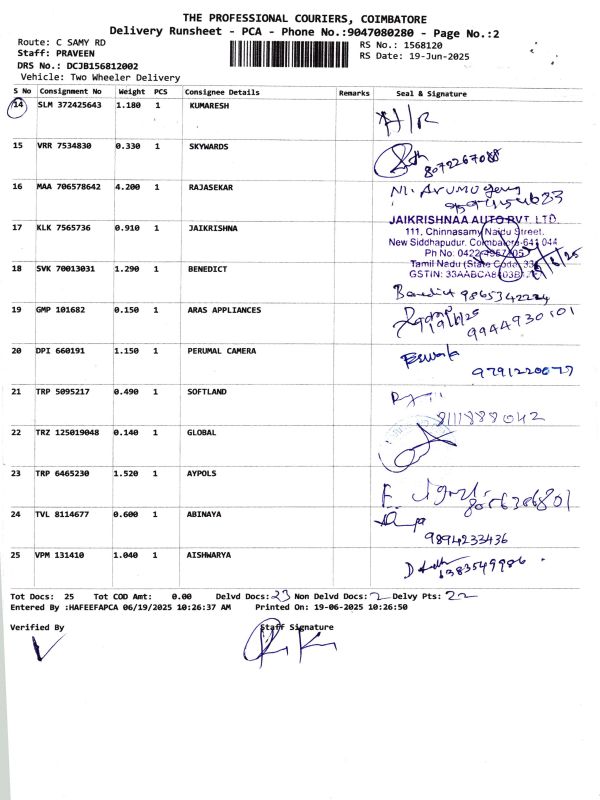 THE PROFESSIONAL COURIERS, COIMBATORE
Delivery Runsheet - PCA - Phone No.:9047080280 - Page No.:2
Route: C SAMY RD
Staff: PRAVEEN
DRS No.: DCJB156812002
Vehicle: Two Wheeler Delivery
RS No.: 1568120
RS Date: 19-Jun-2025
S No Consignment No Weight PCS Consignee Details Remarks Seal & Signature
14 SLM 372425643 1.180 1 KUMARESH
H/R
15 VRR 7534830 0.330 1 SKYWARDS
8072267088
16 MAA 706578642 4.200 1 RAJASEKAR
17 KLK 7565736 0.910 1 JAIKRISHNA
JAIKRISHNAA AUTO PVT. LTD.
111, Chinnasamy Naidu Street,
New Siddhapudur, Coimbatore-641 044
Ph No: 0422
Tamil Nadu (State Code: 33)
GSTIN: 33AABCA8
18 SVK 70013031 1.290 1 BENEDICT
Benedict 9865342224
19 GMP 101682 0.150 1 ARAS APPLIANCES
19/6/25
9944930101
20 DPI 660191 1.150 1 PERUMAL CAMERA
9791220077
21 TRP 5095217 0.490 1 SOFTLAND
8111888042
22 TRZ 125019048 0.140 1 GLOBAL
23 TRP 6465230 1.520 1 AYPOLS
24 TVL 8114677 0.600 1 ABINAYA
9894233436
25 VPM 131410 1.040 1 AISHWARYA
Tot Docs: 25 Tot COD Amt: 0.00 Delvd Docs: 23 Non Delvd Docs: 2 Delvy Pts: 22
Entered By :HAFEEFAPCA 06/19/2025 10:26:37 AM Printed On: 19-06-2025 10:26:50
Verified By Staff Signature